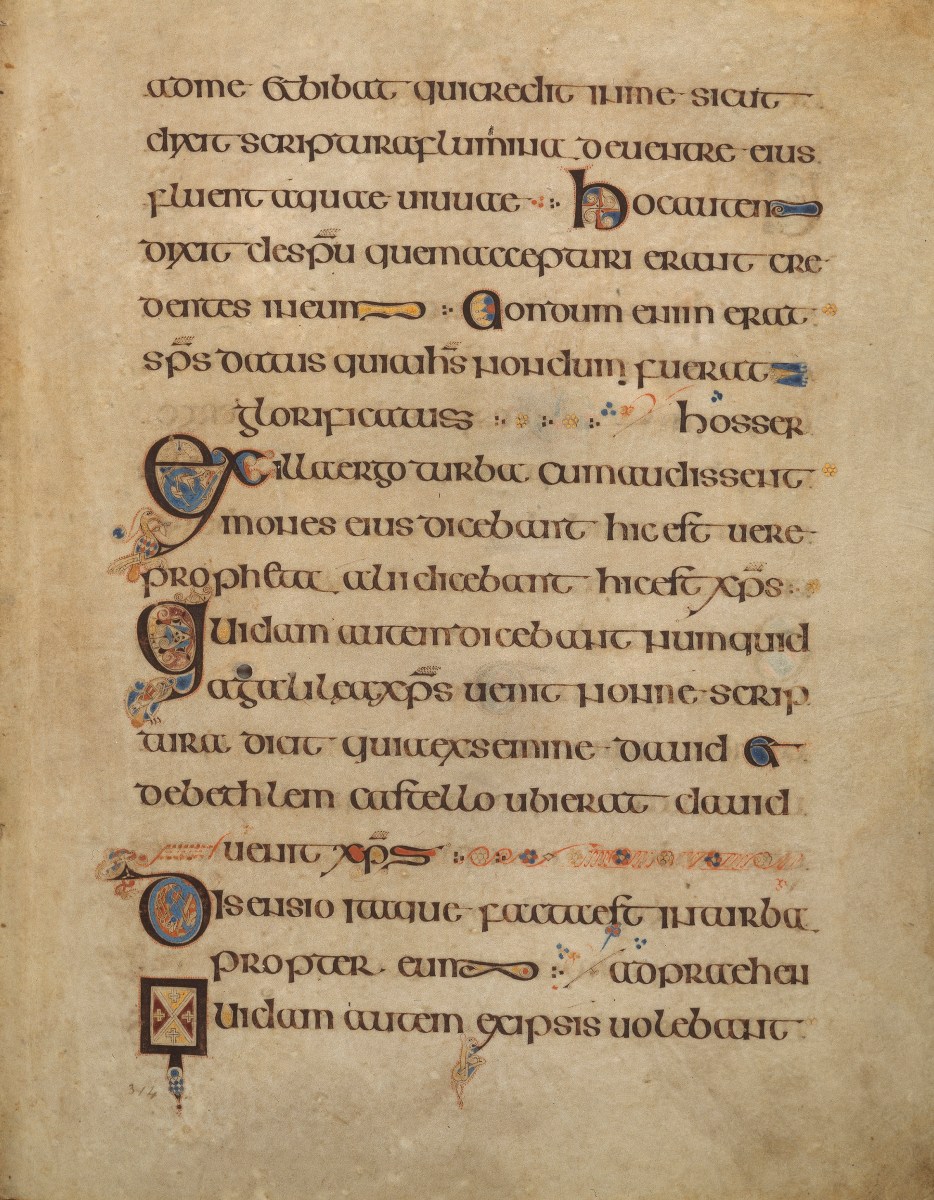 adme et bibat qui credit inme sicut
dixit scriptura flumina deuentre eius
fluent aquae uiuuae hocautem
dixit despu quem accepturi erant cre
dentes ineum Nondum enim erat
sps datus quia ihs nondum fuerat
glorificatuss hosser
Exillaergo turba cumaudissent
mones eius dicebant hic est uere
propheta alii dicebant hicest xps
Quidam autem dicebant numquid
agalilea xps uenit nonne scrip
tura dicit quia exsemine dauid et
debethlem castello ubi erat dauid
uenit xps
Disensio itaque factaest inturba
propter eum adpraehen
Quidam autem exipsis uolebant
314